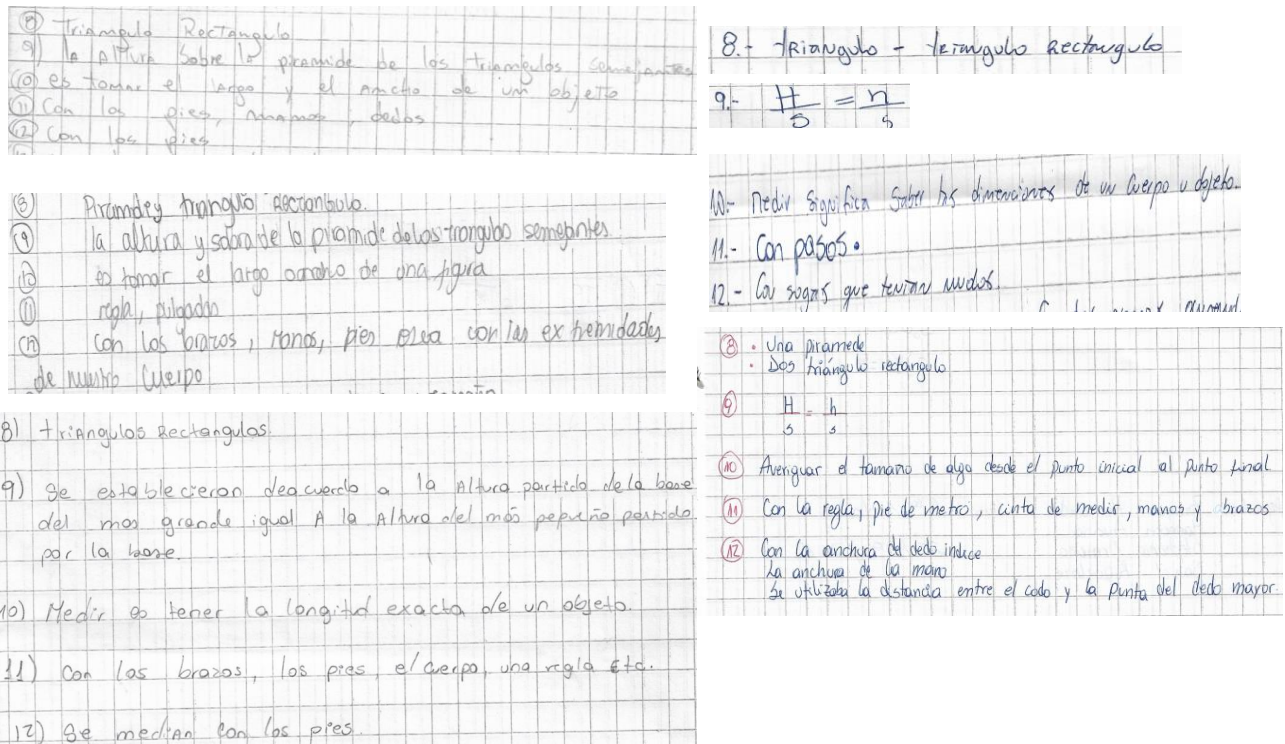 ⑧ Triangulo Rectangulo
9) la Altura sobre lo piramide de los triangulos semejantes
⑩ es tomar el largo y el ancho de un objeto
⑪ Con los pies, manos, dedos
⑫ Con los pies
⑧ Piramide y triangulo Rectangulo.
⑨ la altura y sobra de la piramide de los triangulos semejantes
⑩ es tomar el largo o ancho de una figura
⑪ regla, pulgadas
⑫ Con los brazos, manos, pies o sea con las extremidades
de nuestro cuerpo
8) triangulos Rectangulos.
9) Se establecieron deacuerdo a la Altura partido de la base
del mas grande igual A la Altura del más pequeño partido
por la base.
10) Medir es tener la longitud exacta de un objeto.
11) Con los brazos, los pies, el cuerpo, una regla Etc.
12) Se median con los pies.
8.- triangulo - triangulo Rectangulo
9.- H/S = h/s
10.- Medir significa saber las dimenciones de un cuerpo u objeto.
11.- Con pasos.
12.- Con sogas que tenian nudos.
⑧ • Una piramede
• Dos triángulo rectangulo
⑨ H/s = h/s
⑩ Averiguar el tamaño de algo desde el punto inicial al punto final
⑪ Con la regla, pie de metro, cinta de medir, manos y brazos
⑫ Con la anchura del dedo indice
La anchura de la mano
Se utilizaba la distancia entre el codo y la punta del dedo mayor.